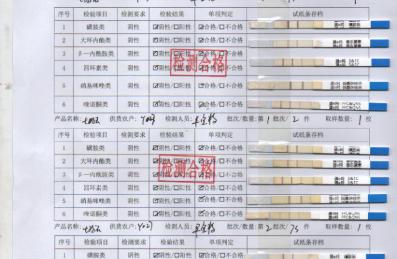 序号 检验项目 检测要求 检验结果 单项判定 试纸条存档
1 磺胺类 阴性 ☑阴性/□阳性 ☑合格/□不合格
2 大环内酯类 阴性 ☑阴性/□阳性 ☑合格/□不合格
3 β一内酰胺类 阴性 ☑阴性/□阳性 ☑合格/□不合格
4 四环素类 阴性 ☑阴性/□阳性 ☑合格/□不合格
检测合格
5 硝基咪唑类 阴性 ☑阴性/□阳性 ☑合格/□不合格
6 喹诺酮类 阴性 ☑阴性/□阳性 ☑合格/□不合格
产品名称: 供货农户: 检测人员: 批次/数量:第1批次/2件 取样数量:1枚
序号 检验项目 检测要求 检验结果 单项判定 试纸条存档
1 磺胺类 阴性 ☑阴性/□阳性 ☑合格/□不合格
2 大环内酯类 阴性 ☑阴性/□阳性 ☑合格/□不合格
3 β一内酰胺类 阴性 ☑阴性/□阳性 ☑合格/□不合格
检测合格
4 四环素类 阴性 ☑阴性/□阳性 ☑合格/□不合格
5 硝基咪唑类 阴性 ☑阴性/□阳性 ☑合格/□不合格
6 喹诺酮类 阴性 ☑阴性/□阳性 ☑合格/□不合格
产品名称: 供货农户: 检测人员: 批次/数量:第2批次/75件 取样数量:1枚
序号 检验项目 检测要求 检验结果 单项判定 试纸条存档
1 磺胺类 阴性 ☑阴性/□阳性 ☑合格/□不合格